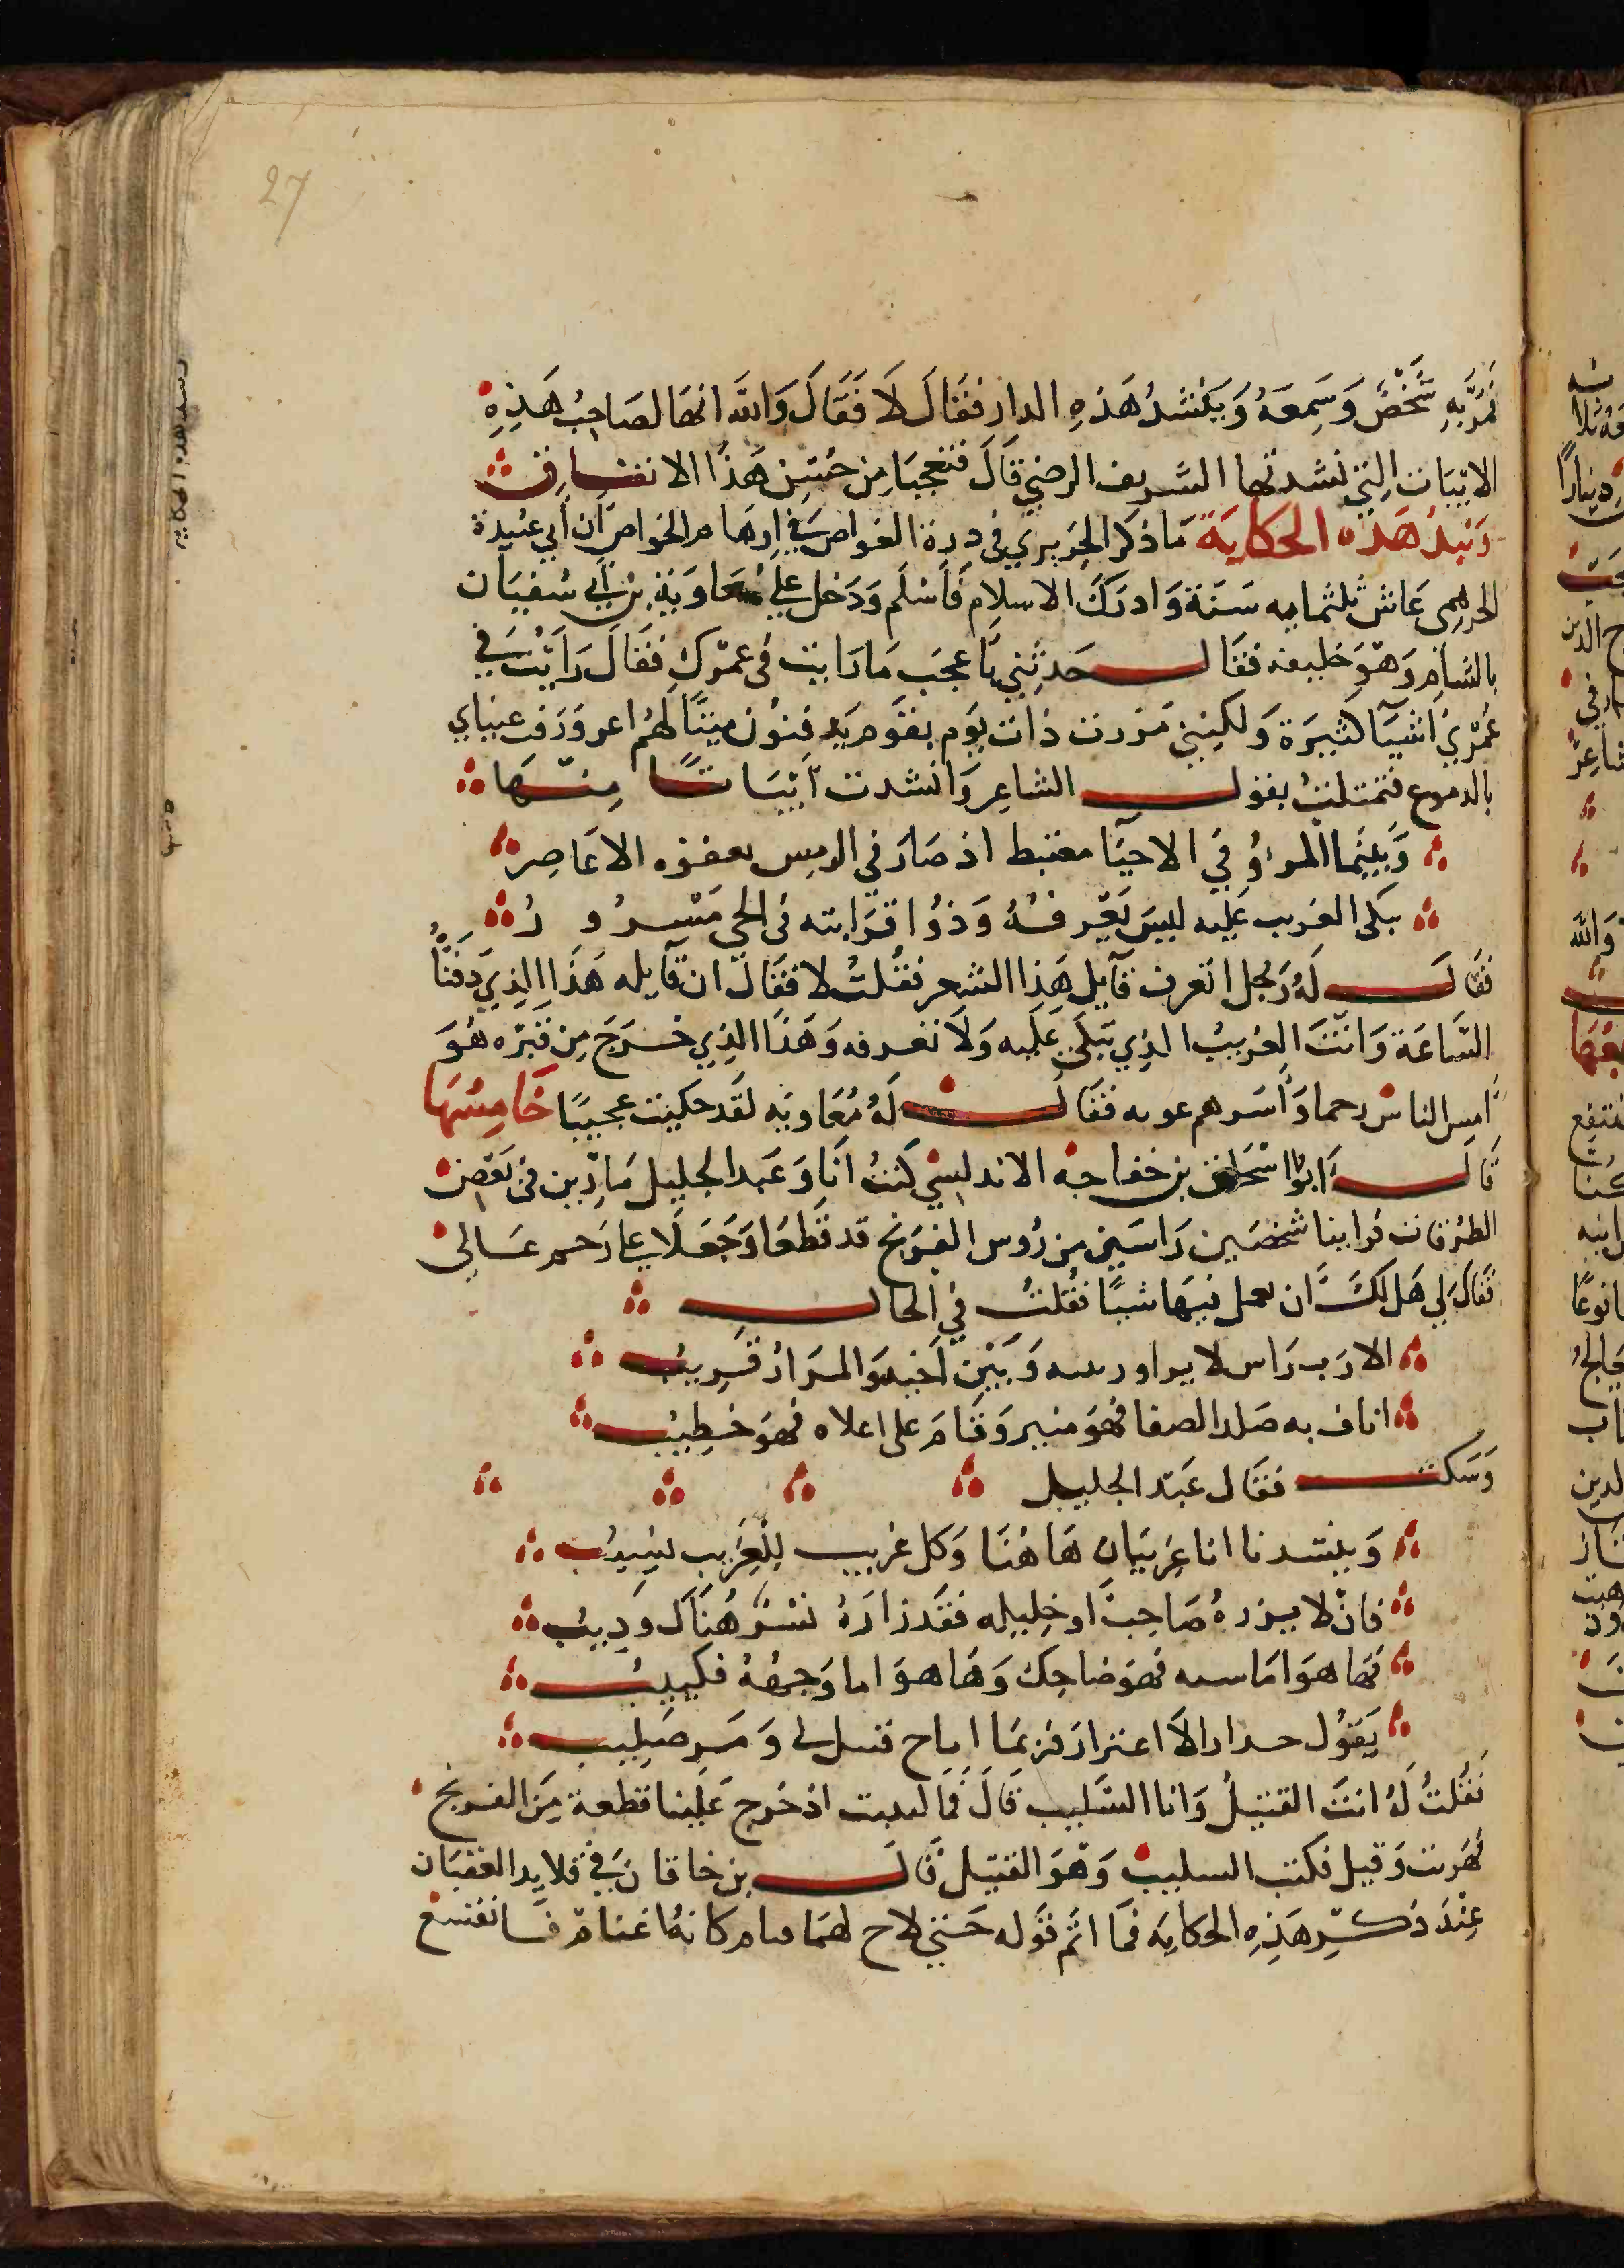 27
فمر به شخص وسمعه وينشد هذه الدار فقال لا فقال والله انها لصاحب هذه
الابيات التي نشدتها الشريف الرضي قال فتعجبا من حسن هذا الاتفاق
وتبد هذه الحكاية ما ذكر الحريري في درة الغواص في اوهام الخواص ان ابي عبيدة
الجرهمي عاش ثلثمايه سنة وادرك الاسلام فاسلم ودخل علي معاوية بن ابي سفيان
بالشام وهو خليفه فقال حدثني باعجب ما رايت في عمرك فقال رايت في
عمري اشيآ كثيرة ولكنني مررت ذات يوم بقوم يدفنون ميتا لهم اعرورفت عيناي
بالدموع فتمثلت بقول الشاعر وانشدت ابياتا منها
وبينما المرؤ في الاحيا مغتبط اذ صار في الرمس تعفوه الاعاصر
بكى الغريب عليه ليس يعرفه وذوا قرابته في الحي مسرور
فقال له رجل اتعرف قآيل هذا الشعر فقلت لا فقال ان قآيله هذا الذي دفنا
الساعة وانت الغريب الذي تبكي عليه ولا تعرفه وهذا الذي خرج من قبره هو
امس الناس رحما واسرهم بموته فقال له معاويه لقد حكيت عجيبا خامسها
قال ابوا سحاق بن خفاجه الاندلسي كنت انا وعبد الجليل مآرين في بعض
الطرقات فراينا شخصين راسين من رؤس الفرنج قد قطعا وجعلا على رحم عالي
فقال لي هل لك ان تعمل فيها شيا فقلت في الحال
الا رب راس لا يزاور بينه وبين اخيه والمزار قريب
اناف به صلد الصفا فهو منبر وقام على اعلاه فهو خطيب
وسكت فقال عبد الجليل
وينشدنا انا غريبان هاهنا وكل غريب للغريب نسيب
فان لا يزره صاحب او خليله فقد زاره نسر هناك وديب
فها هو اما سنه فهو ضاحك وها هو اما وجهه فكييب
يقول حدارا لا اعترار فربما اناح قتيل لي ومر صليب
فقلت له انت القتيل وانا السليب قال فما لبثت اذ خرج علينا قطعة من الفرنج
فهربت وقيل فكنت السليب وهو القتيل قال بن خاقان في قلايد العقيان
عند ذكر هذه الحكايه فما اتم قوله حتي لاح لهما قتام كانه اغنام فانقشع